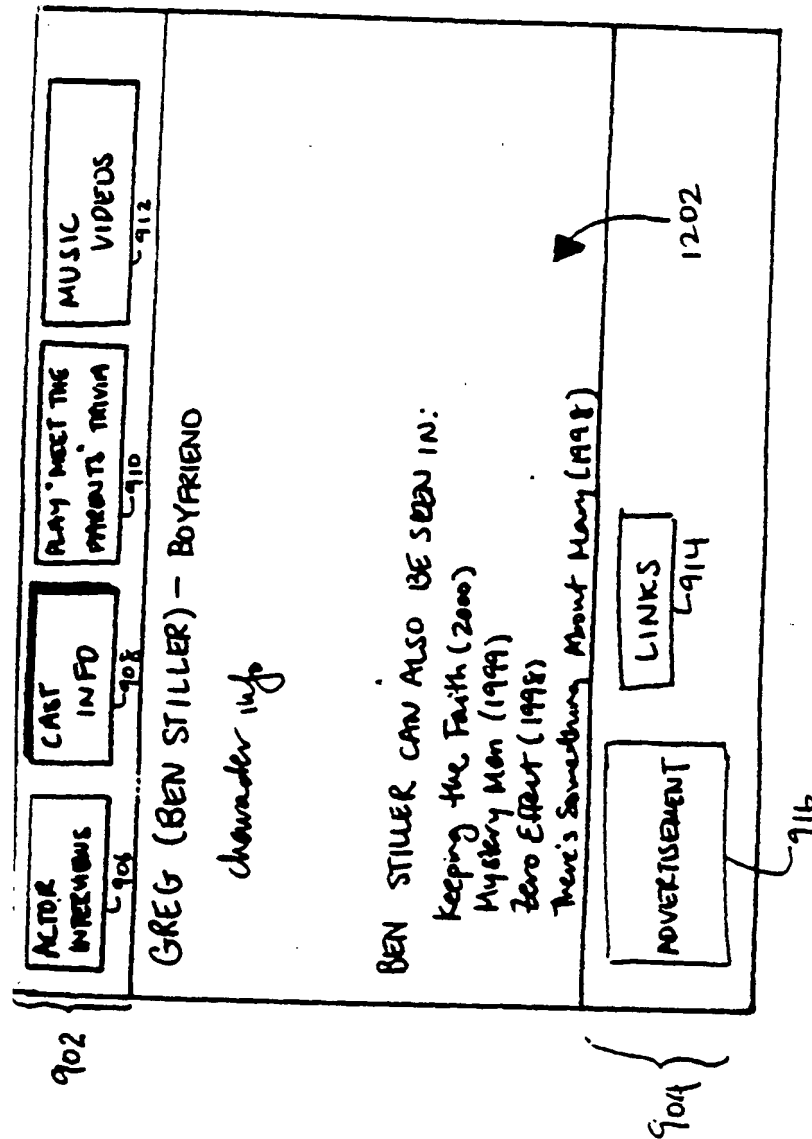 902
ACTOR
INTERVIEWS
906
CAST
INFO
908
PLAY "MEET THE
PARENTS" TRIVIA
910
MUSIC
VIDEOS
912
GREG (BEN STILLER) - BOYFRIEND
character info
BEN STILLER CAN ALSO BE SEEN IN:
Keeping the Faith (2000)
Mystery Men (1999)
Zero Effect (1998)
There's Something About Mary (1998)
1202
904
ADVERTISEMENT
916
LINKS
914